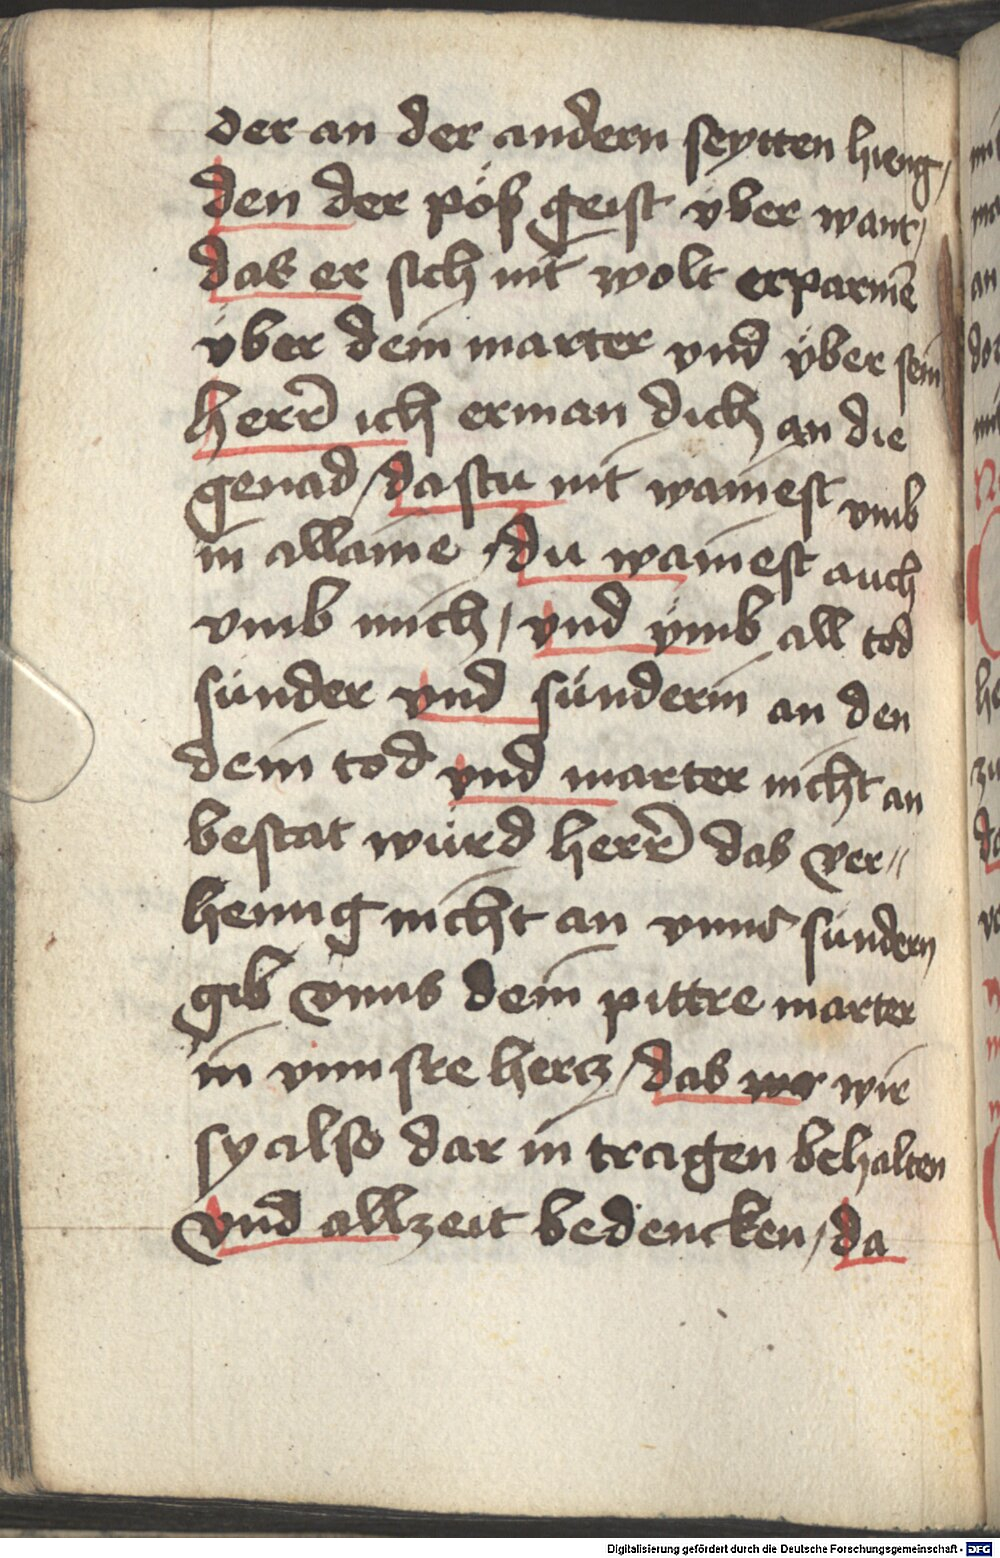 der an der andern seytten hieng /
den der pöß geist über want /
das er sich nit wolt erparmē
über dein marter vnd über sein
herr̄ ich erman dich an die
genad / dastu nit wainest vmb
in allaine / du wainest auch
vmb mich / vnd vmb all tod
sünder vnd sünderin an den
dein tod vnd marter nicht an
bestat würd herr̄ das ver〃
heng nicht an vnns sündern
gib vnns dein pittre marter
in vnnsre hercz / das wir
sy also dar in tragen behalten
vnd allzeit bedencken / da
Digitalisierung gefördert durch die Deutsche Forschungsgemeinschaft - DFG